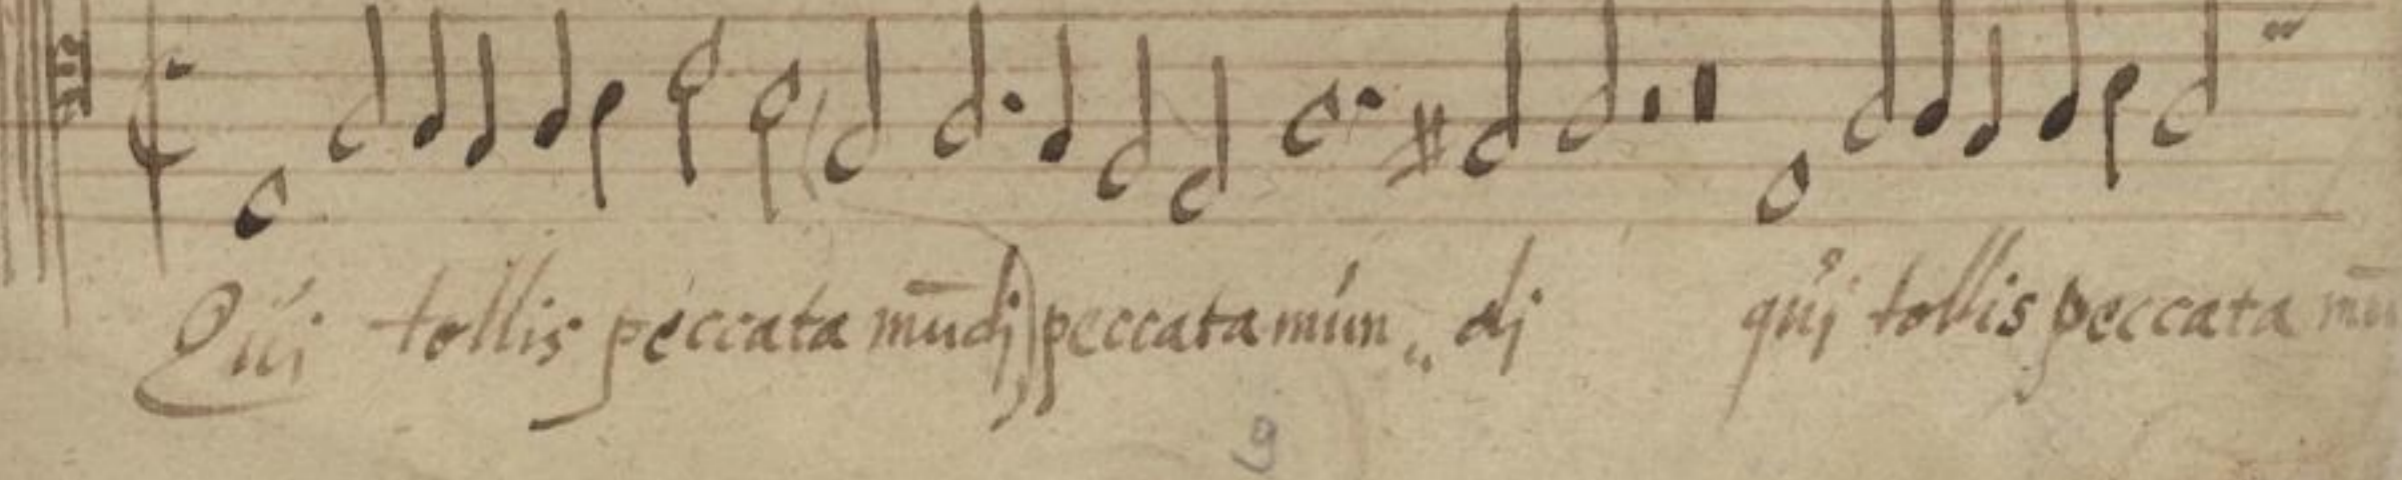 Qui tollis peccata mūdj peccata mún„ dj quij tollis peccata mū
9